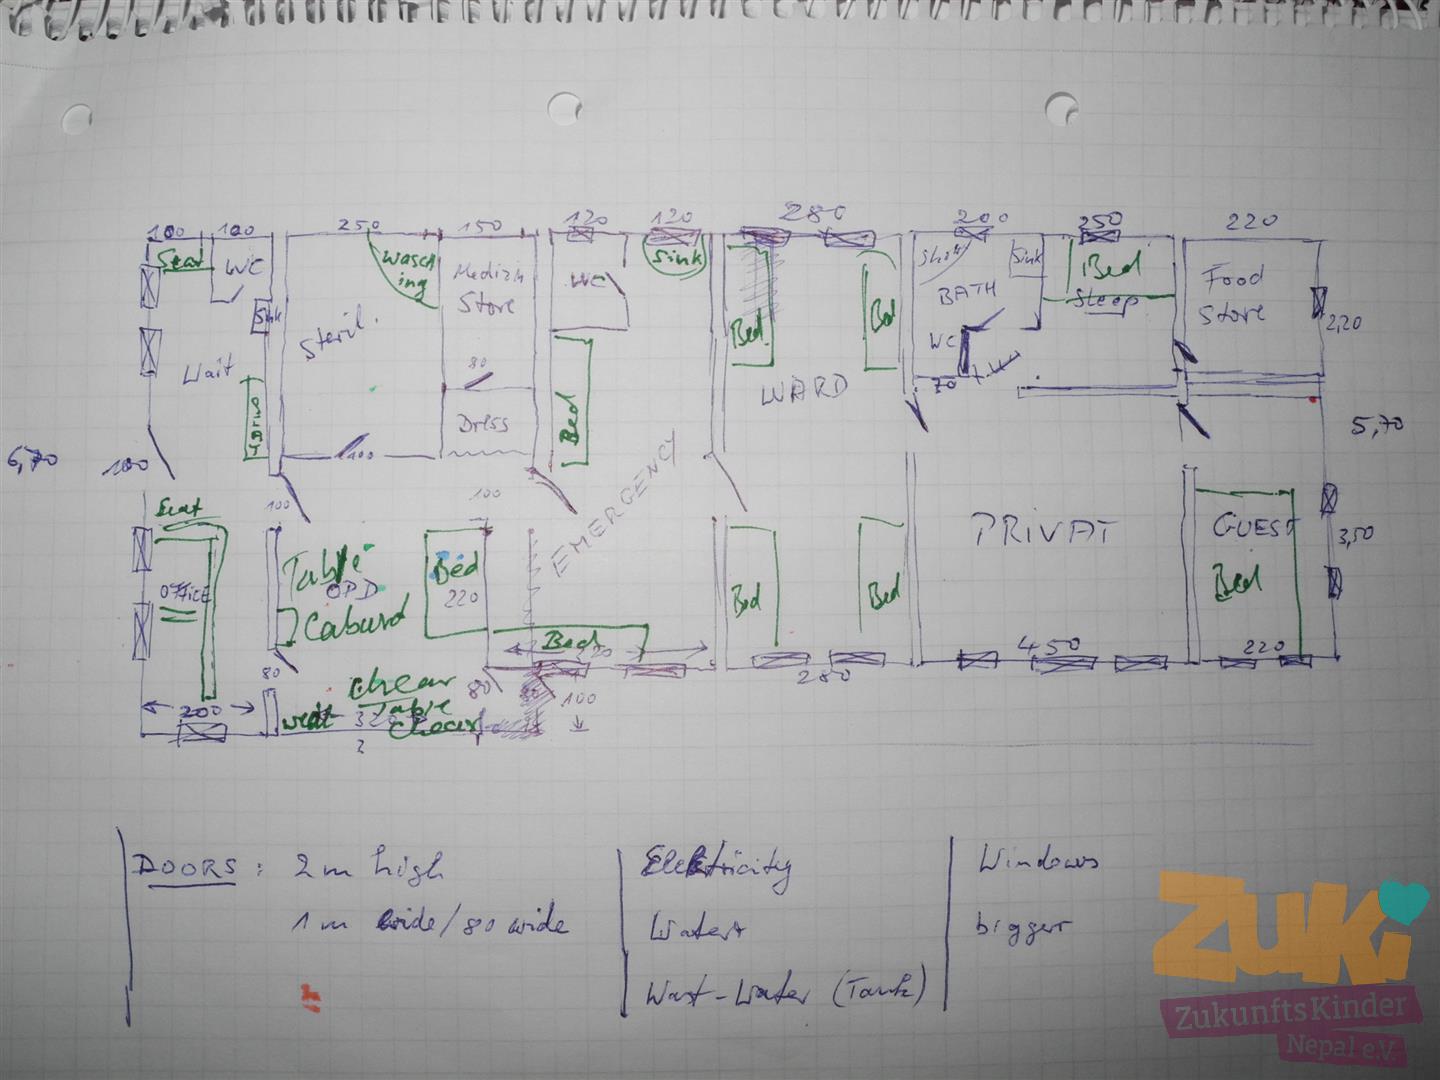 100 100 250 150 120 120 280 200 250 220
Seat
WC
Wasch
ing
Medizin
Store
WC
Sink
Sink
Bed
Sleep
BATH
Food
Store
2,20
Sink
Steril.
Wait
80
Bed
Bed
WC
70
WARD
Dress
Bed
6,70
100
400
5,70
Seat
100
100
EMERGENCY
PRIVAT
GUEST
3,50
OFFICE
Table
OPD
Bed
220
Bed
Bed
Bed
Caburd
Bed
450
220
80
280
chear
Table
80
100
200
chear
2
DOORS : 2m high
1m wide / 80 wide
Electricity
Water
Wast-Water (Tank)
Windows
bigger
ZUKi
ZukunftsKinder
Nepal e.V.